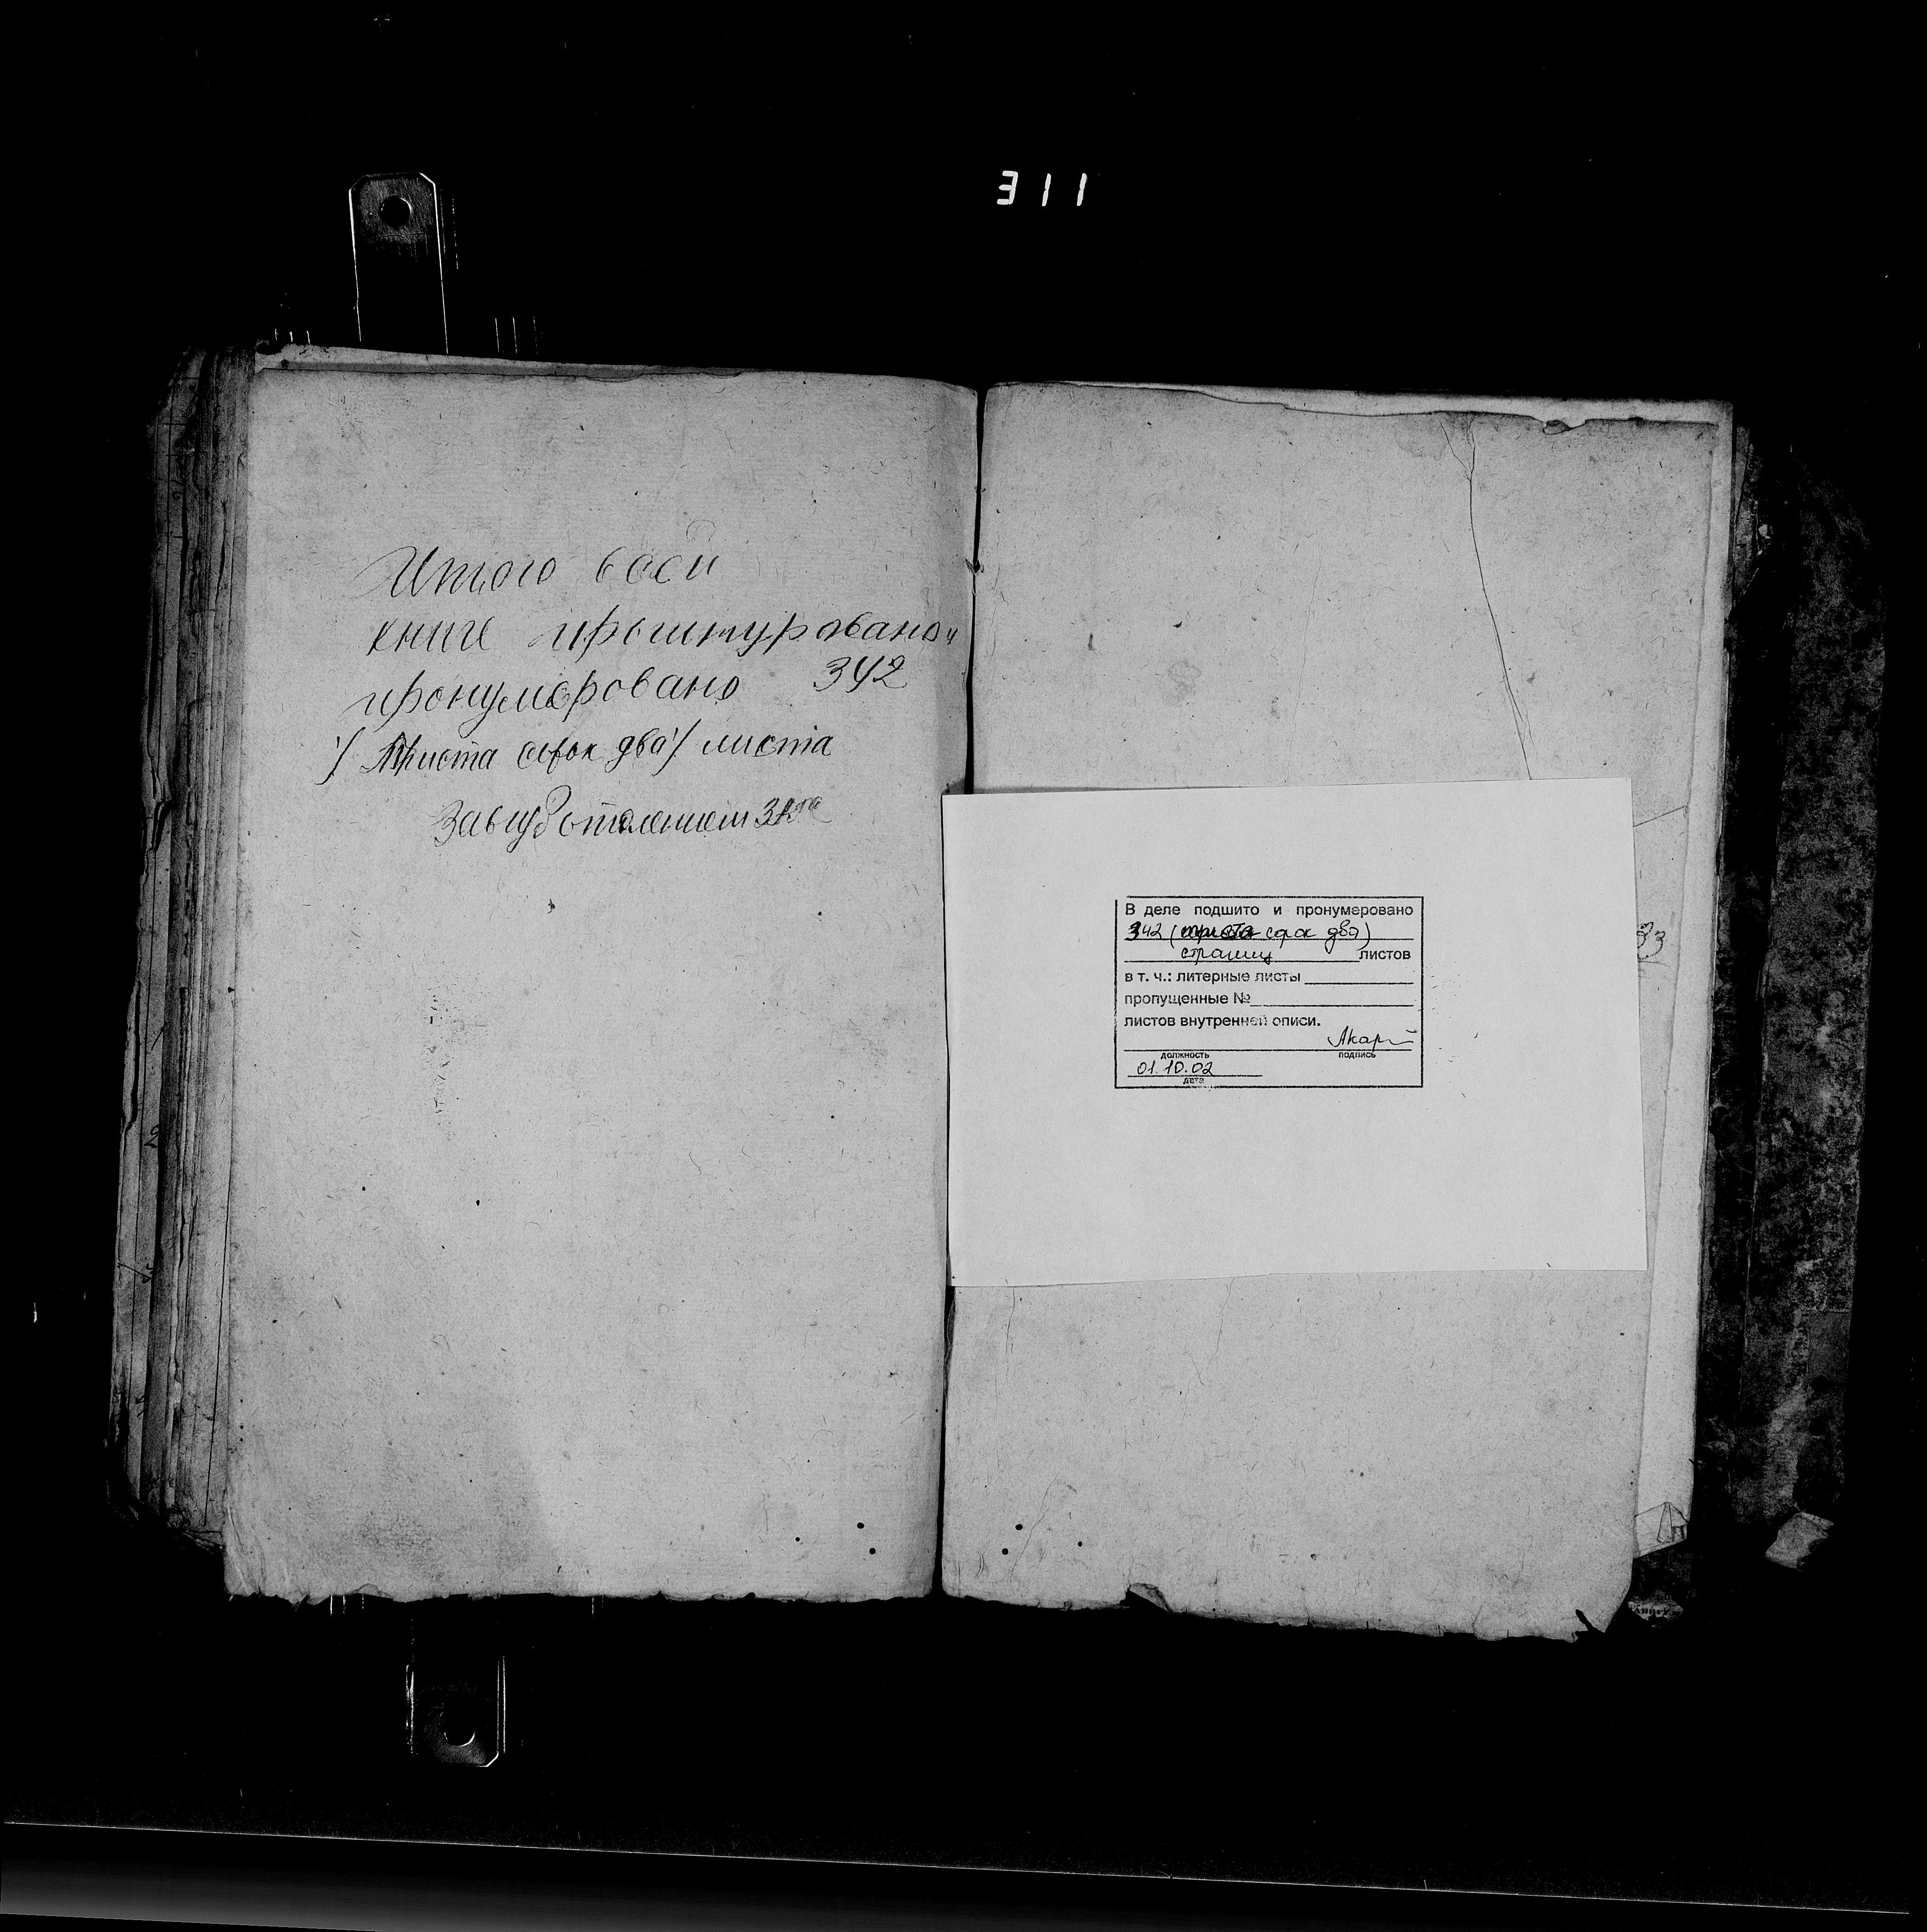 311
Итого в сей
книге прошнуровано и
пронумеровано 342
/триста сорок два/ листа
В деле подшито и пронумеровано
342 (триста сорок два)
страниц листов
в т. ч.: литерные листы
пропущенные №
листов внутренней описи.
должность подпись
01.10.02
дата
33